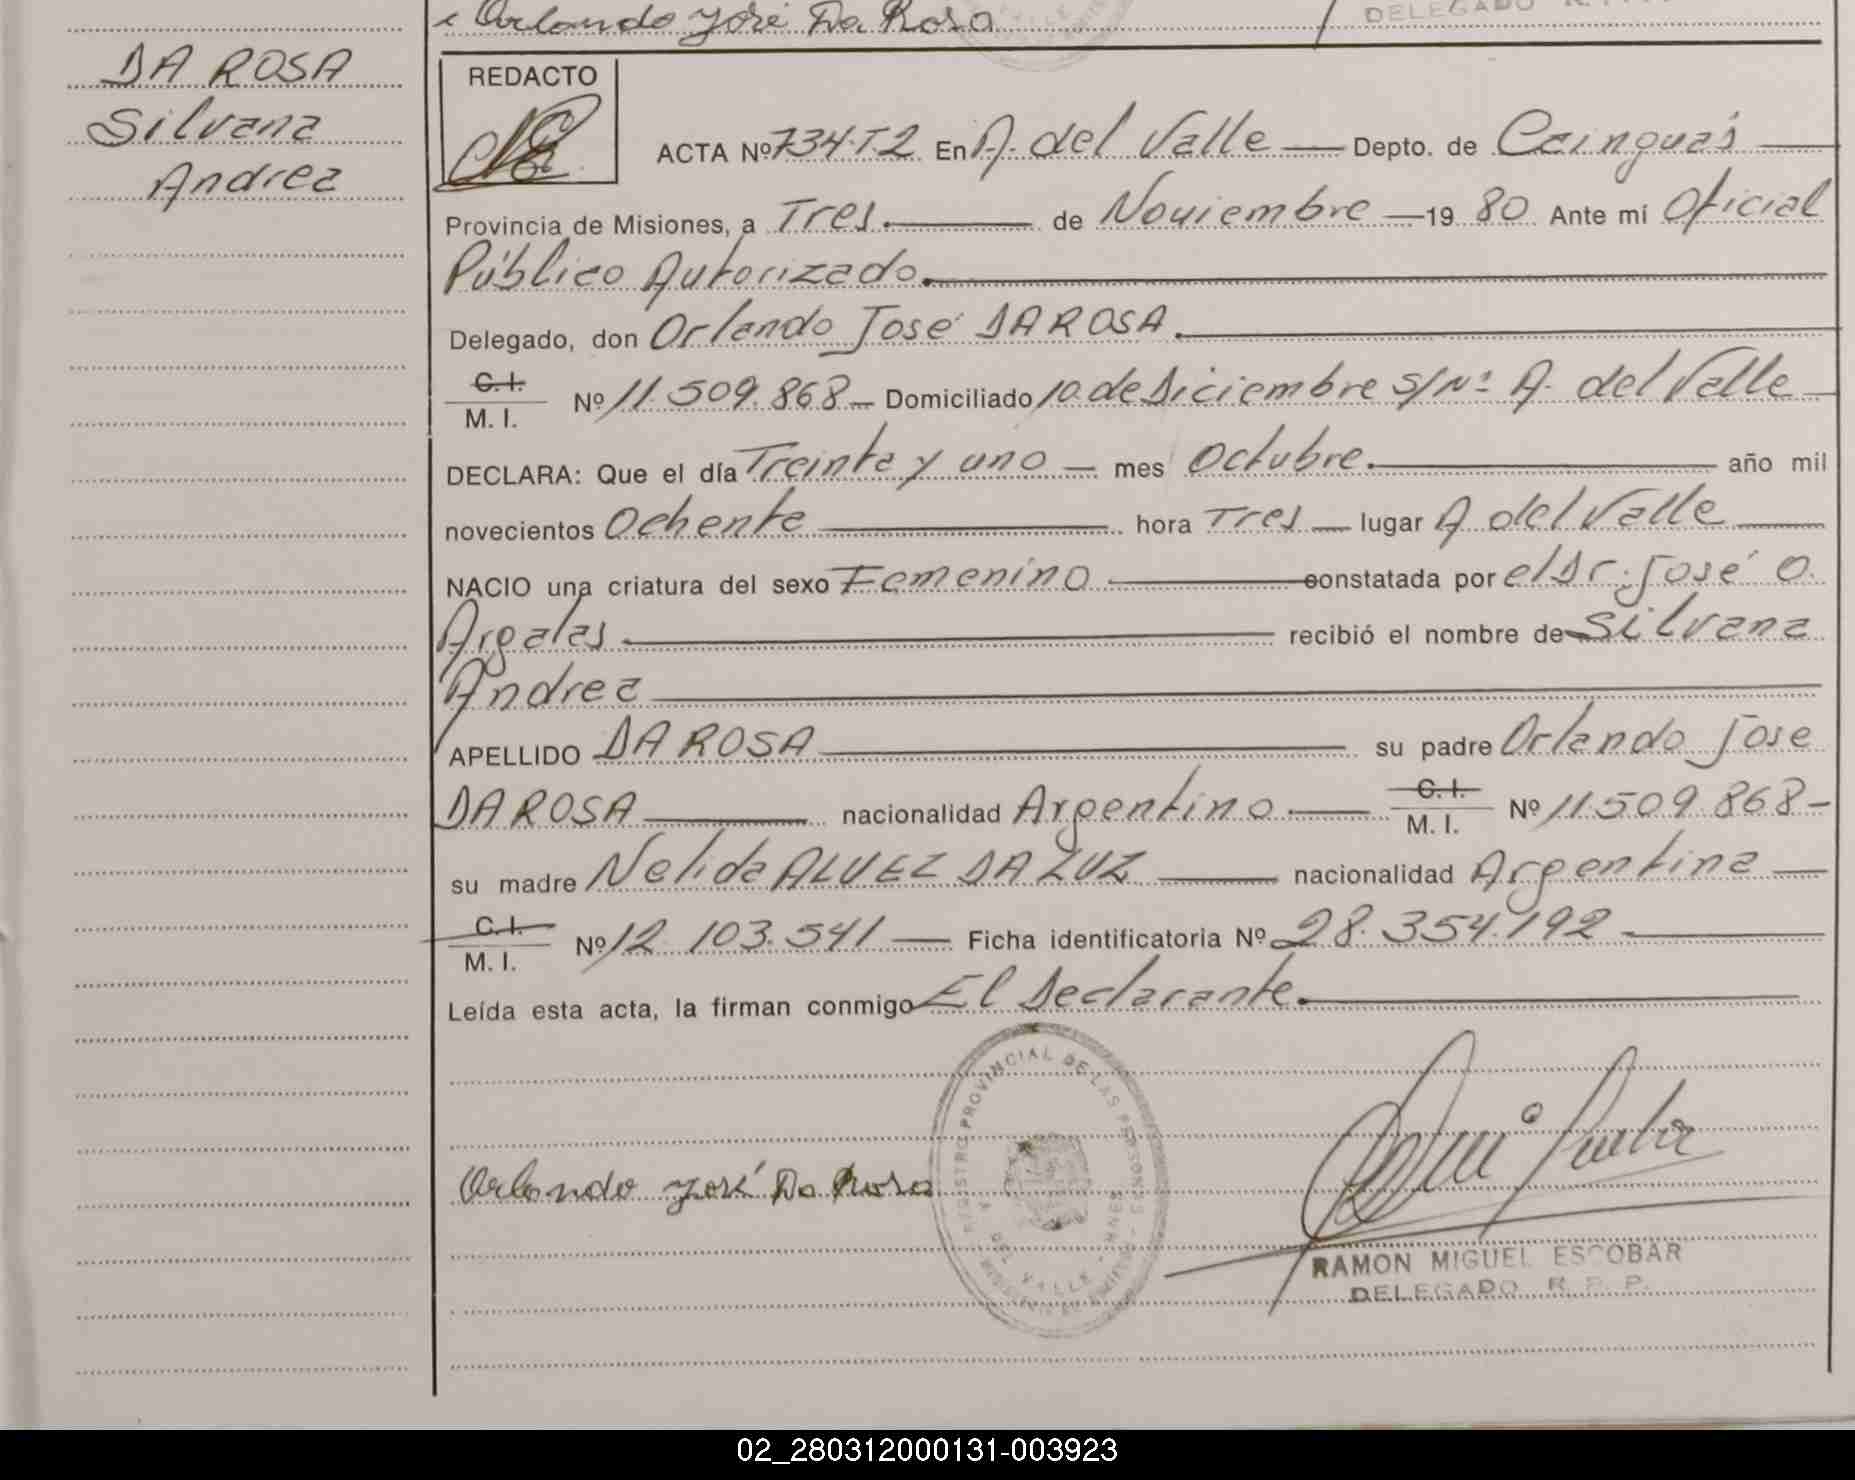 Orlando José Da Rosa
DELEGADO
DA ROSA
Silvana
Andrea
REDACTO
ACTA Nº 734-T2 En A. del Valle — Depto. de Cainguás
Provincia de Misiones, a Tres. de Noviembre — 19 80 Ante mí Oficial
Público Autorizado.
Delegado, don Orlando José DA ROSA.
C. I.
M. I. Nº 11.509.868 — Domiciliado 10 de Diciembre s/Nº A. del Valle
DECLARA: Que el día Treinta y uno — mes Octubre. año mil
novecientos Ochenta hora Tres — lugar A del Valle
NACIO una criatura del sexo Femenino constatada por el Dr. José O.
Argalas recibió el nombre de Silvana
Andrea
APELLIDO DA ROSA su padre Orlando Jose
DA ROSA nacionalidad Argentino — C. I.
M. I. Nº 11.509.868 —
su madre Nelida ALVEZ DA LUZ nacionalidad Argentina —
C. I.
M. I. Nº 12.103.541 — Ficha identificatoria Nº 28.354.192
Leída esta acta, la firman conmigo El Declarante.
REGISTRO PROVINCIAL DE LAS PERSONAS
A. DEL VALLE - MNES
Orlando José Da Rosa
RAMON MIGUEL ESCOBAR
DELEGADO R. P. P.
02_280312000131-003923